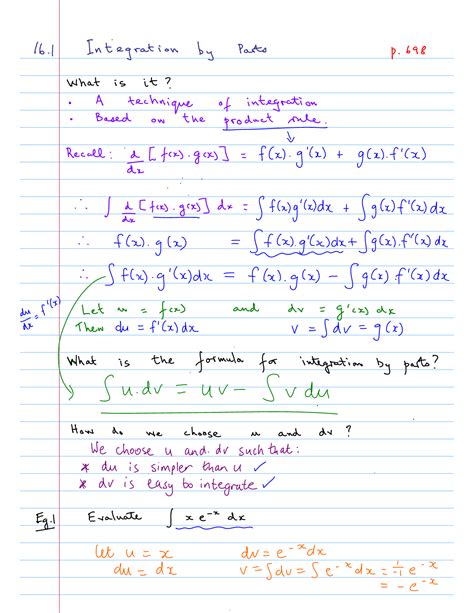 16.1 Integration by Parts p. 698
What is it?
• A technique of integration
• Based on the product rule.
Recall: d/dx [f(x).g(x)] = f(x).g'(x) + g(x).f'(x)
∴ ∫ d/dx [f(x).g(x)] dx = ∫f(x)g'(x)dx + ∫g(x)f'(x)dx
∴ f(x).g(x) = ∫f(x).g'(x)dx + ∫g(x).f'(x)dx
∴ ∫f(x).g'(x)dx = f(x).g(x) − ∫g(x) f'(x)dx
du/dx = f'(x)
Let u = f(x) and dv = g'(x) dx
Then du = f'(x)dx v = ∫dv = g(x)
What is the formula for integration by parts?
∫u.dv = uv − ∫v du
How do we choose u and dv?
We choose u and dv such that:
* du is simpler than u ✓
* dv is easy to integrate ✓
Eg.1 Evaluate ∫ x e^-x dx
let u = x dv = e^-x dx
du = dx v = ∫dv = ∫e^-x dx = 1/-1 e^-x
= − e^-x